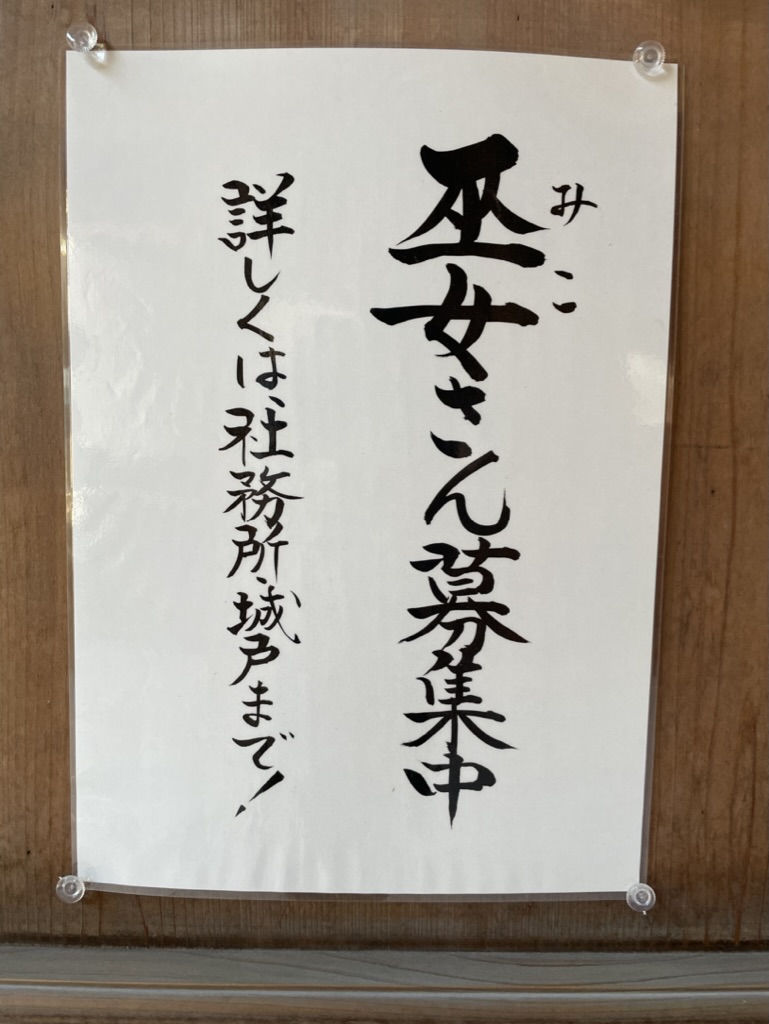 巫女さん募集中
みこ
詳しくは、社務所、城戸まで!